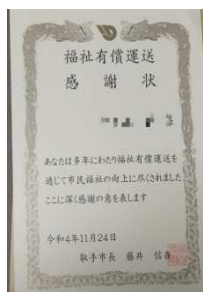 福祉有償運送
感謝状
あなたは多年にわたり福祉有償運送を
通じて市民福祉の向上に尽くされました
ここに深く感謝の意を表します
令和4年11月24日
取手市長 藤井 信吾